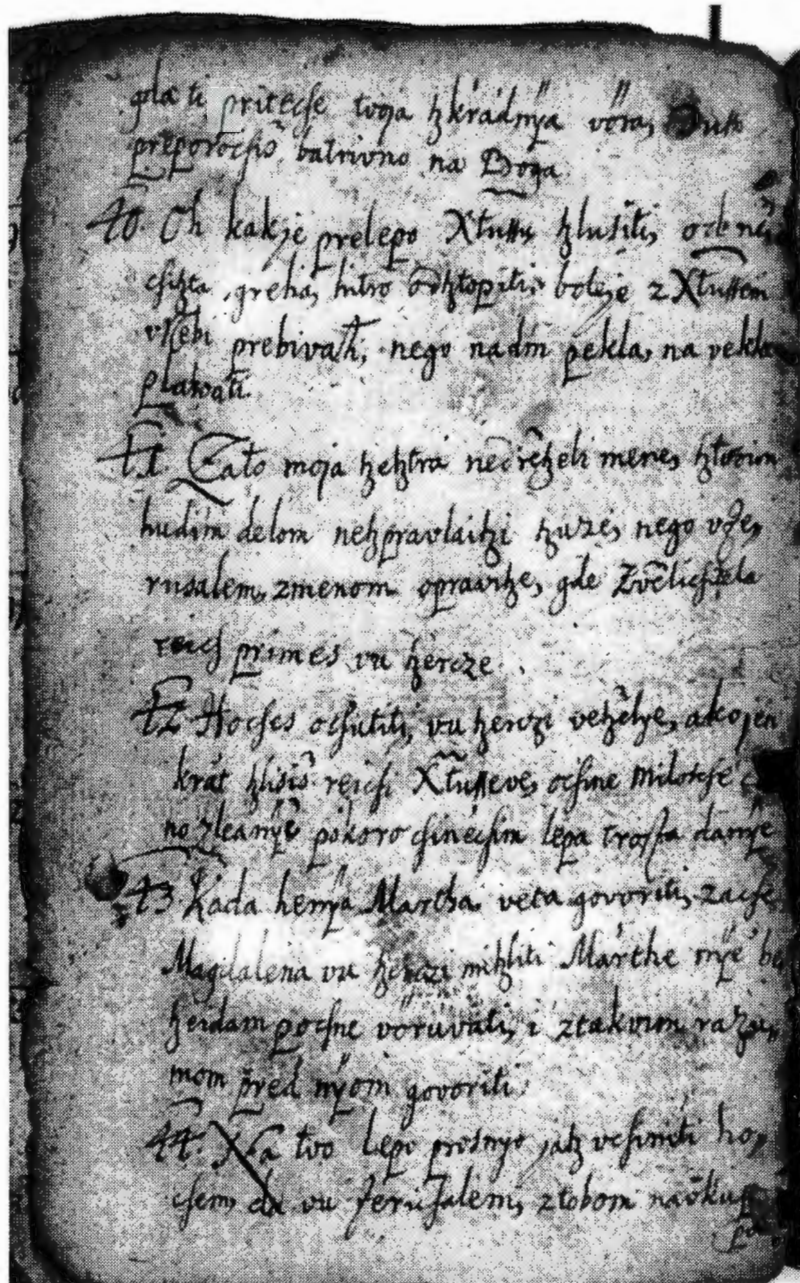 gda ti pritecse toga hkradnya vöra, Dussu
preporocsiš batrivno na Boga.
40. Oh kakje prelepo Xtussu hlusiti, od
csihta greha, hitro odhtopiti, bolje z Xtussem
vnebi prebivati, nego nadni pekla, na veke
plakati.
41. Zato moja hehtra nedreheli mene, htvoim
hudim delom nehpravlaihi huze, nego vJe,
rusalem, zmenom opravihe, gde zvelicsitela
reics primes vu herze.
42 Hocses ocsutiti, vu herczi vehelye, ako jen
krat hlisis reicsi Xtusseve, ocsine milotcse
no zleanye pokoro csinecsim lepa trosta danye
43 Kada henya Martha veta govoriti, zacse
Magdalena vu herczi mihliti Marthe nye be
heidam pocsne vöruvati, i ztakvim razu,
mom pred nyom govoriti.
44. Xa tvo lepo prosnyo jah vcsiniti ho,
csem, da vu Jerusalem, ztobom navkup